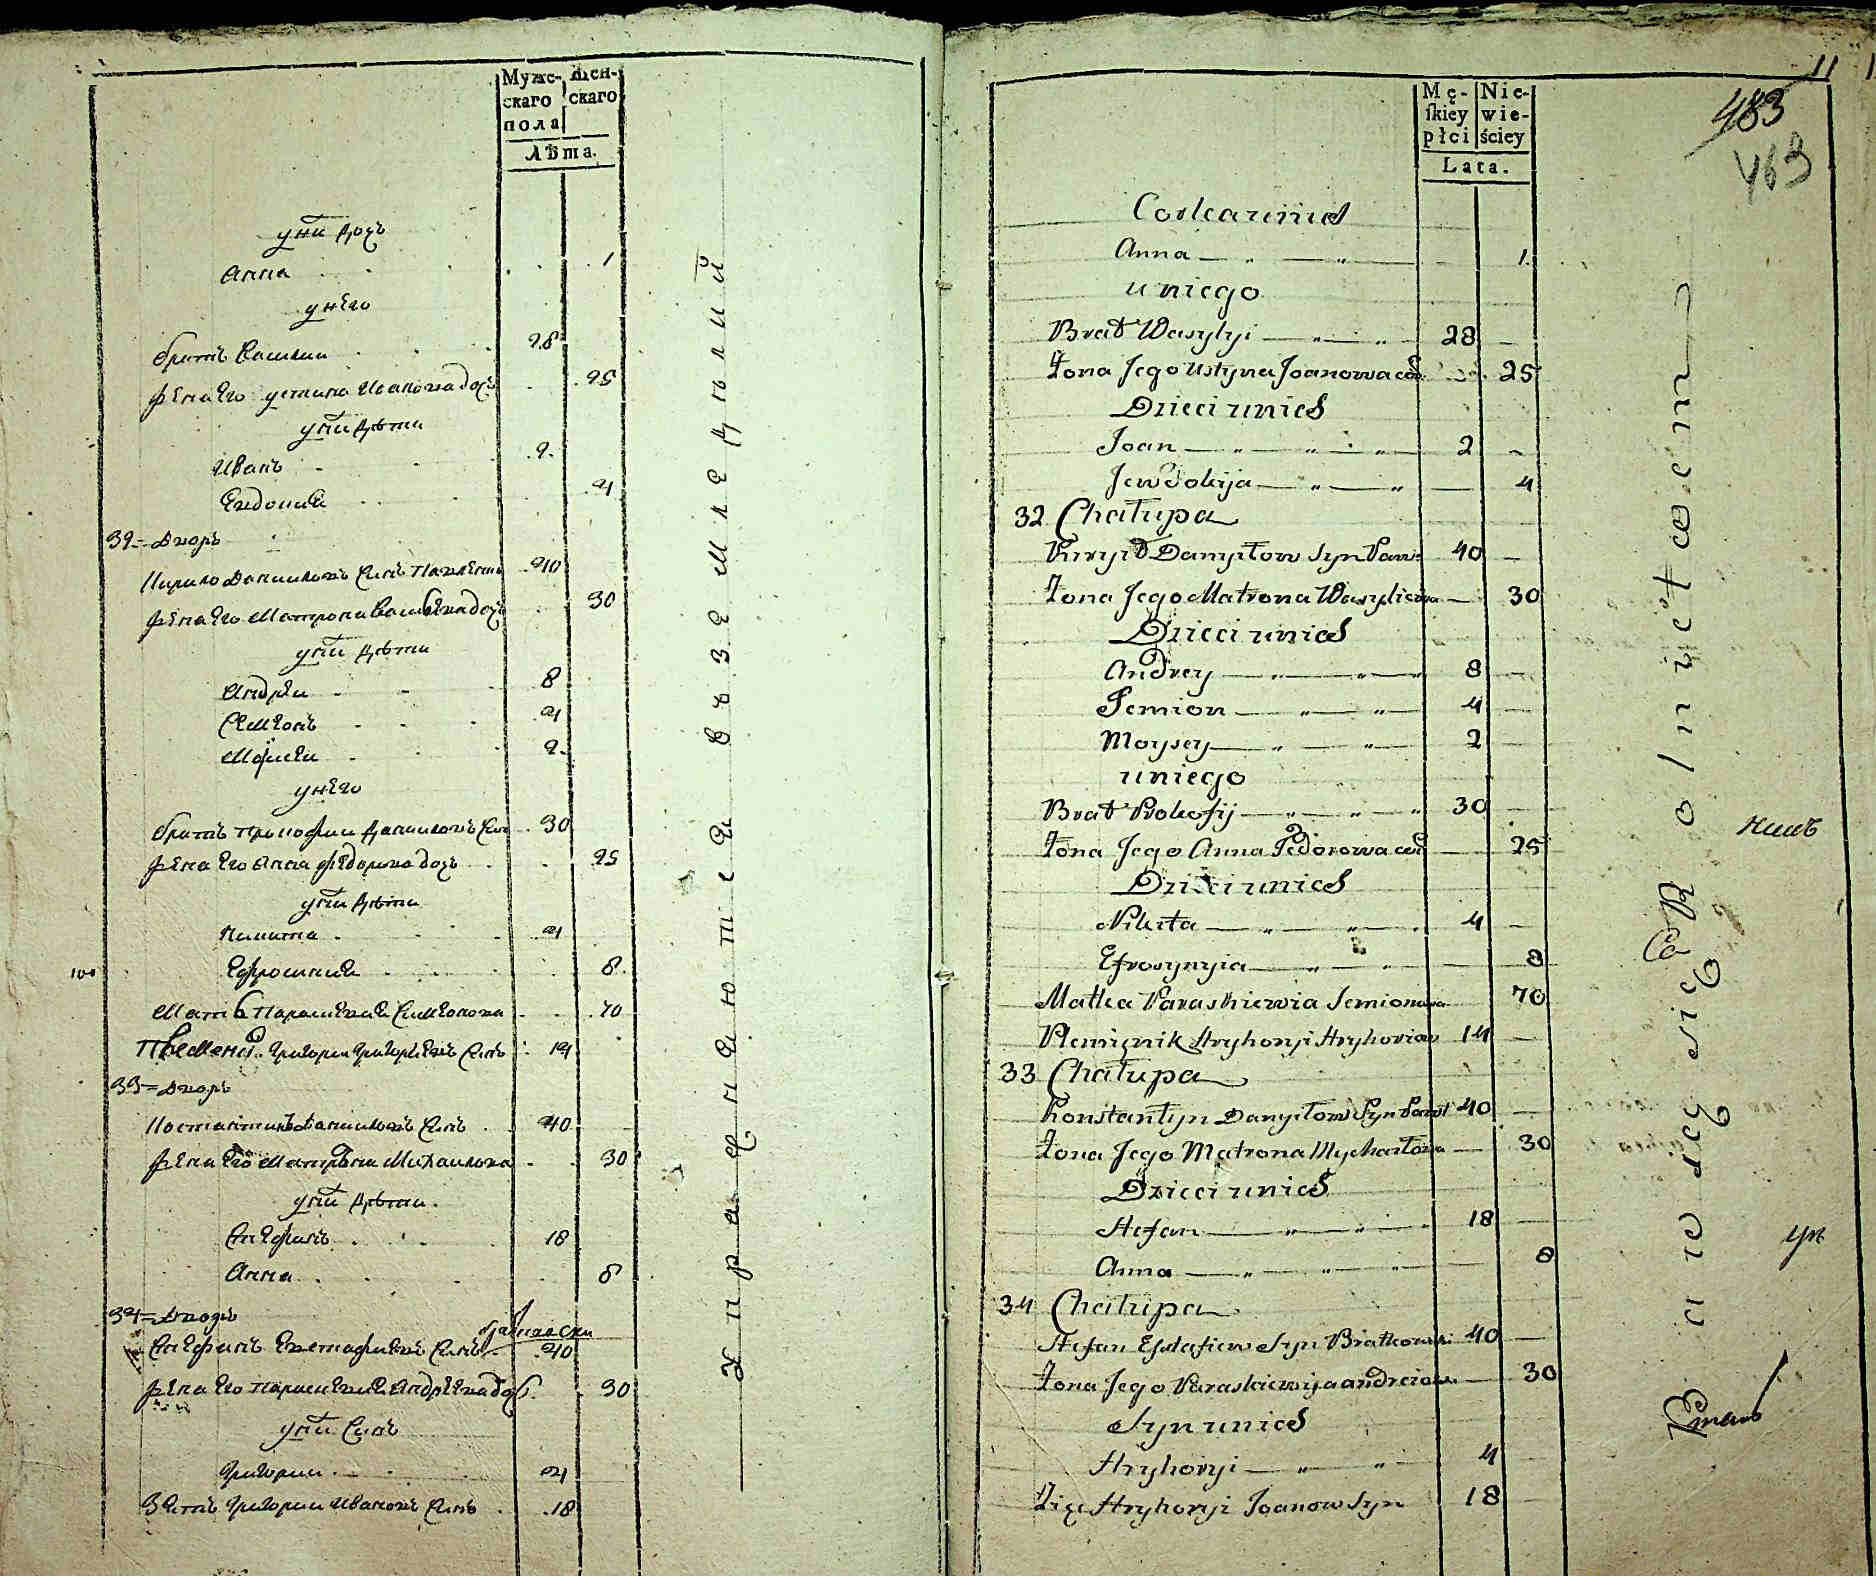 Муже-
скаго
пола
Жен-
скаго
Лѣта.
у них дочь
Анна 1
у него
братъ Василий 28
жена его устина Иванова дочь 25
у них дѣти
Иванъ 2
Евдокия 4
32 = Дворъ
Кирило Даниловъ сынъ 40
жена его Матрона Васильева дочь 30
у них дѣти
Андрей 8
Семионъ 4
Мойсей 2
у него
братъ Прокофий Даниловъ сынъ 30
жена его Анна Федорова дочь 25
у них дѣти
Никита 4
Ефросиния 8
Мать Параскевия Симионова 70
Племен. Григорий Григориевъ сынъ 14
33 = Дворъ
Константинъ Даниловъ сынъ 40
жена его Матрона Михайлова 30
у них дѣти
Стефанъ 18
Анна 8
34 = Дворъ
Стефанъ Евстафиевъ сынъ Братковски 40
жена его Параскевия Андреева доч. 30
у них сынъ
Григорий 4
Зять Григорий Ивановъ сынъ 18
упражняются въ земледѣлий
11
483
463
Mę-
ſkiey
płci
Nie-
wie-
ściey
Lata.
Corka unich
Anna 1
u niego
Brat Wasylyi 28
Żona Jego Ustyna Joanowa cor. 25
Dzieci unich
Joan 2
Jewdokija 4
32 Chałupa
Kiryło Danyłow syn Paw: 40
Żona Jego Matrona Wasyliewa 30
Dzieci unich
Andrey 8
Semion 4
Moysey 2
u niego
Brat Prokofij 30
Żona Jego Anna Fedorowa cor 25
Dzieci unich
Nikita 4
Efrosynyia 8
Matka Paraskiewia Semionowa 70
Plemięnik Hryhoryi Hryhoriow 14
33 Chałupa
Konstantyn Danyłow Syn Pawl 40
Żona Jego Matrona Mychałowa 30
Dzieci unich
Stefan 18
Anna 8
34 Chałupa
Stefan Efstafiew Syn Bratkowski 40
Żona Jego Paraskiewija andreiowa 30
Syn unich
Hryhoryi 4
Zięć Hryhoryi Joanow Syn 18
Bawią się Rolnictwem